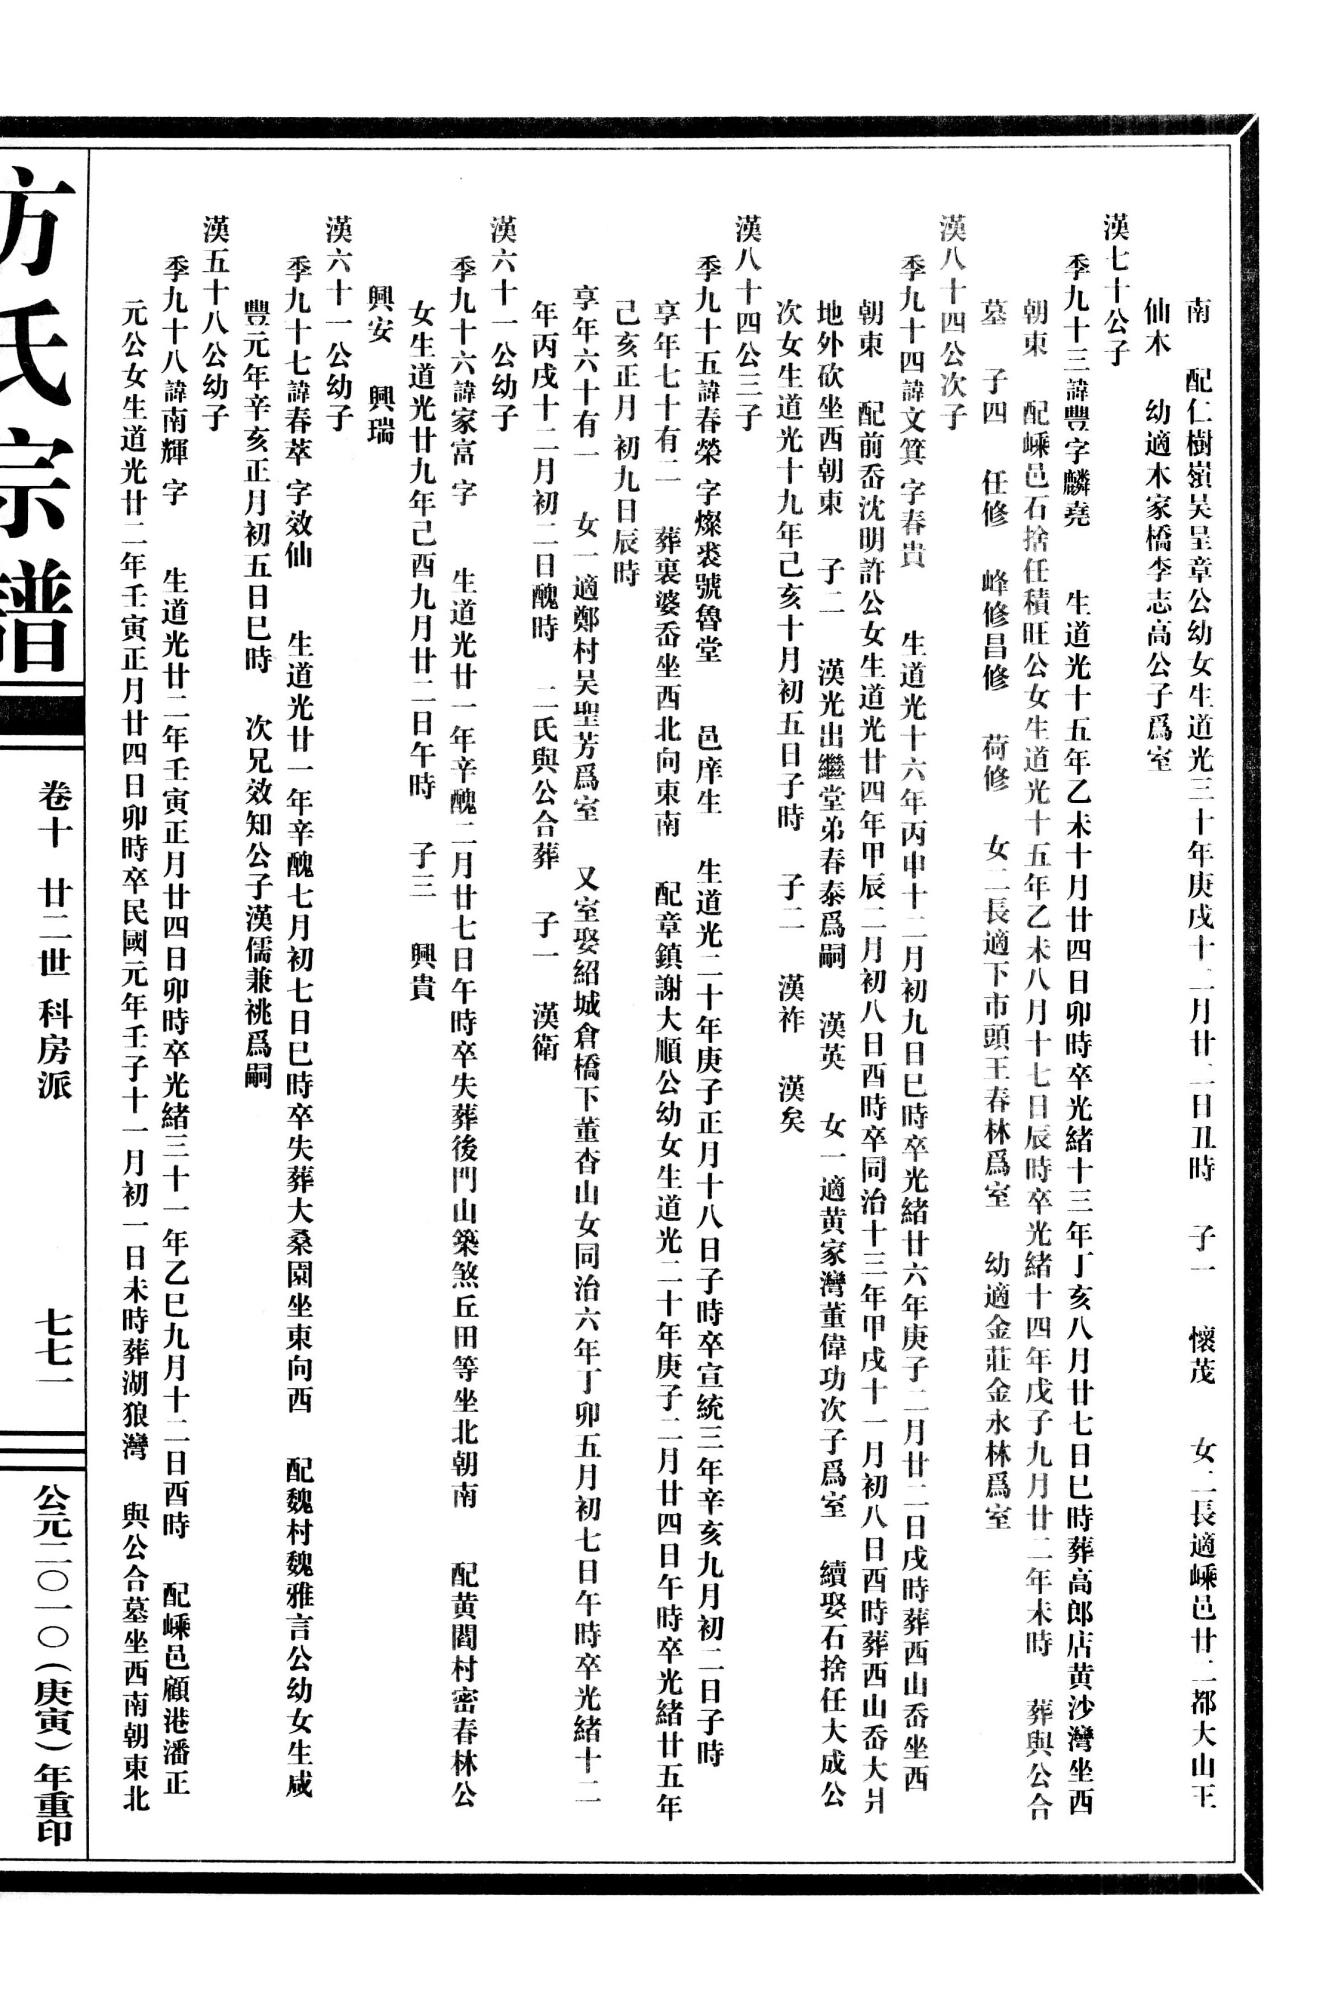 南　配仁樹嶺吴呈章公幼女生道光三十年庚戌十二月廿二日丑時　子一　懷茂　女二長適嵊邑廿二都大山王
仙木　幼適木家橋李志高公子爲室
漢七十公子
季九十三諱豐字麟堯　生道光十五年乙未十月廿四日卯時卒光緒十三年丁亥八月廿七日巳時葬高郎店黄沙灣坐西
朝東　配嵊邑石捨任積旺公女生道光十五年乙未八月十七日辰時卒光緒十四年戊子九月廿二年未時　葬與公合
墓　子四　任修　峰修昌修　荷修　女二長適下市頭王春林爲室　幼適金莊金永林爲室
漢八十四公次子
季九十四諱文箕字春貴　生道光十六年丙申十二月初九日巳時卒光緒廿六年庚子二月廿二日戌時葬西山岙坐西
朝東　配前岙沈明許公女生道光廿四年甲辰二月初八日酉時卒同治十三年甲戌十一月初八日酉時葬西山岙大爿
地外砍坐西朝東　子二　漢光出繼堂弟春泰爲嗣　漢英　女一適黄家灣董偉功次子爲室　續娶石捨任大成公
次女生道光十九年己亥十月初五日子時　子二　漢祚　漢矣
漢八十四公三子
季九十五諱春榮字燦裘號魯堂　邑庠生　生道光二十年庚子正月十八日子時卒宣統三年辛亥九月初二日子時
享年七十有二　葬裏婆岙坐西北向東南　配章鎮謝大順公幼女生道光二十年庚子二月廿四日午時卒光緒廿五年
己亥正月初九日辰時
享年六十有一　女一適鄭村吴聖芳爲室　又室娶紹城倉橋下董杳山女同治六年丁卯五月初七日午時卒光緒十二
年丙戌十二月初二日醜時　二氏與公合葬　子一　漢衛
漢六十一公幼子
季九十六諱家富字　生道光廿一年辛醜二月廿七日午時卒失葬後門山築煞丘田等坐北朝南　配黄閻村密春林公
女生道光廿九年己酉九月廿二日午時　子三　興貴
興安　興瑞
漢六十一公幼子
季九十七諱春萃字效仙　生道光廿一年辛醜七月初七日巳時卒失葬大桑園坐東向西　配魏村魏雅言公幼女生咸
豐元年辛亥正月初五日巳時　次兄效知公子漢儒兼祧爲嗣
漢五十八公幼子
季九十八諱南輝字　生道光廿二年壬寅正月廿四日卯時卒光緒三十一年乙巳九月十二日酉時　配嵊邑顧港潘正
元公女生道光廿二年壬寅正月廿四日卯時卒民國元年壬子十一月初一日未時葬湖狼灣　與公合墓坐西南朝東北
方氏宗譜
卷十　廿二世　科房派　七七一　公元二〇一〇(庚寅)年重印